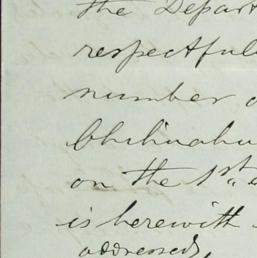 the Depart
respectful
number o
Chihuahu
on the 1st
is herewith
addressed,